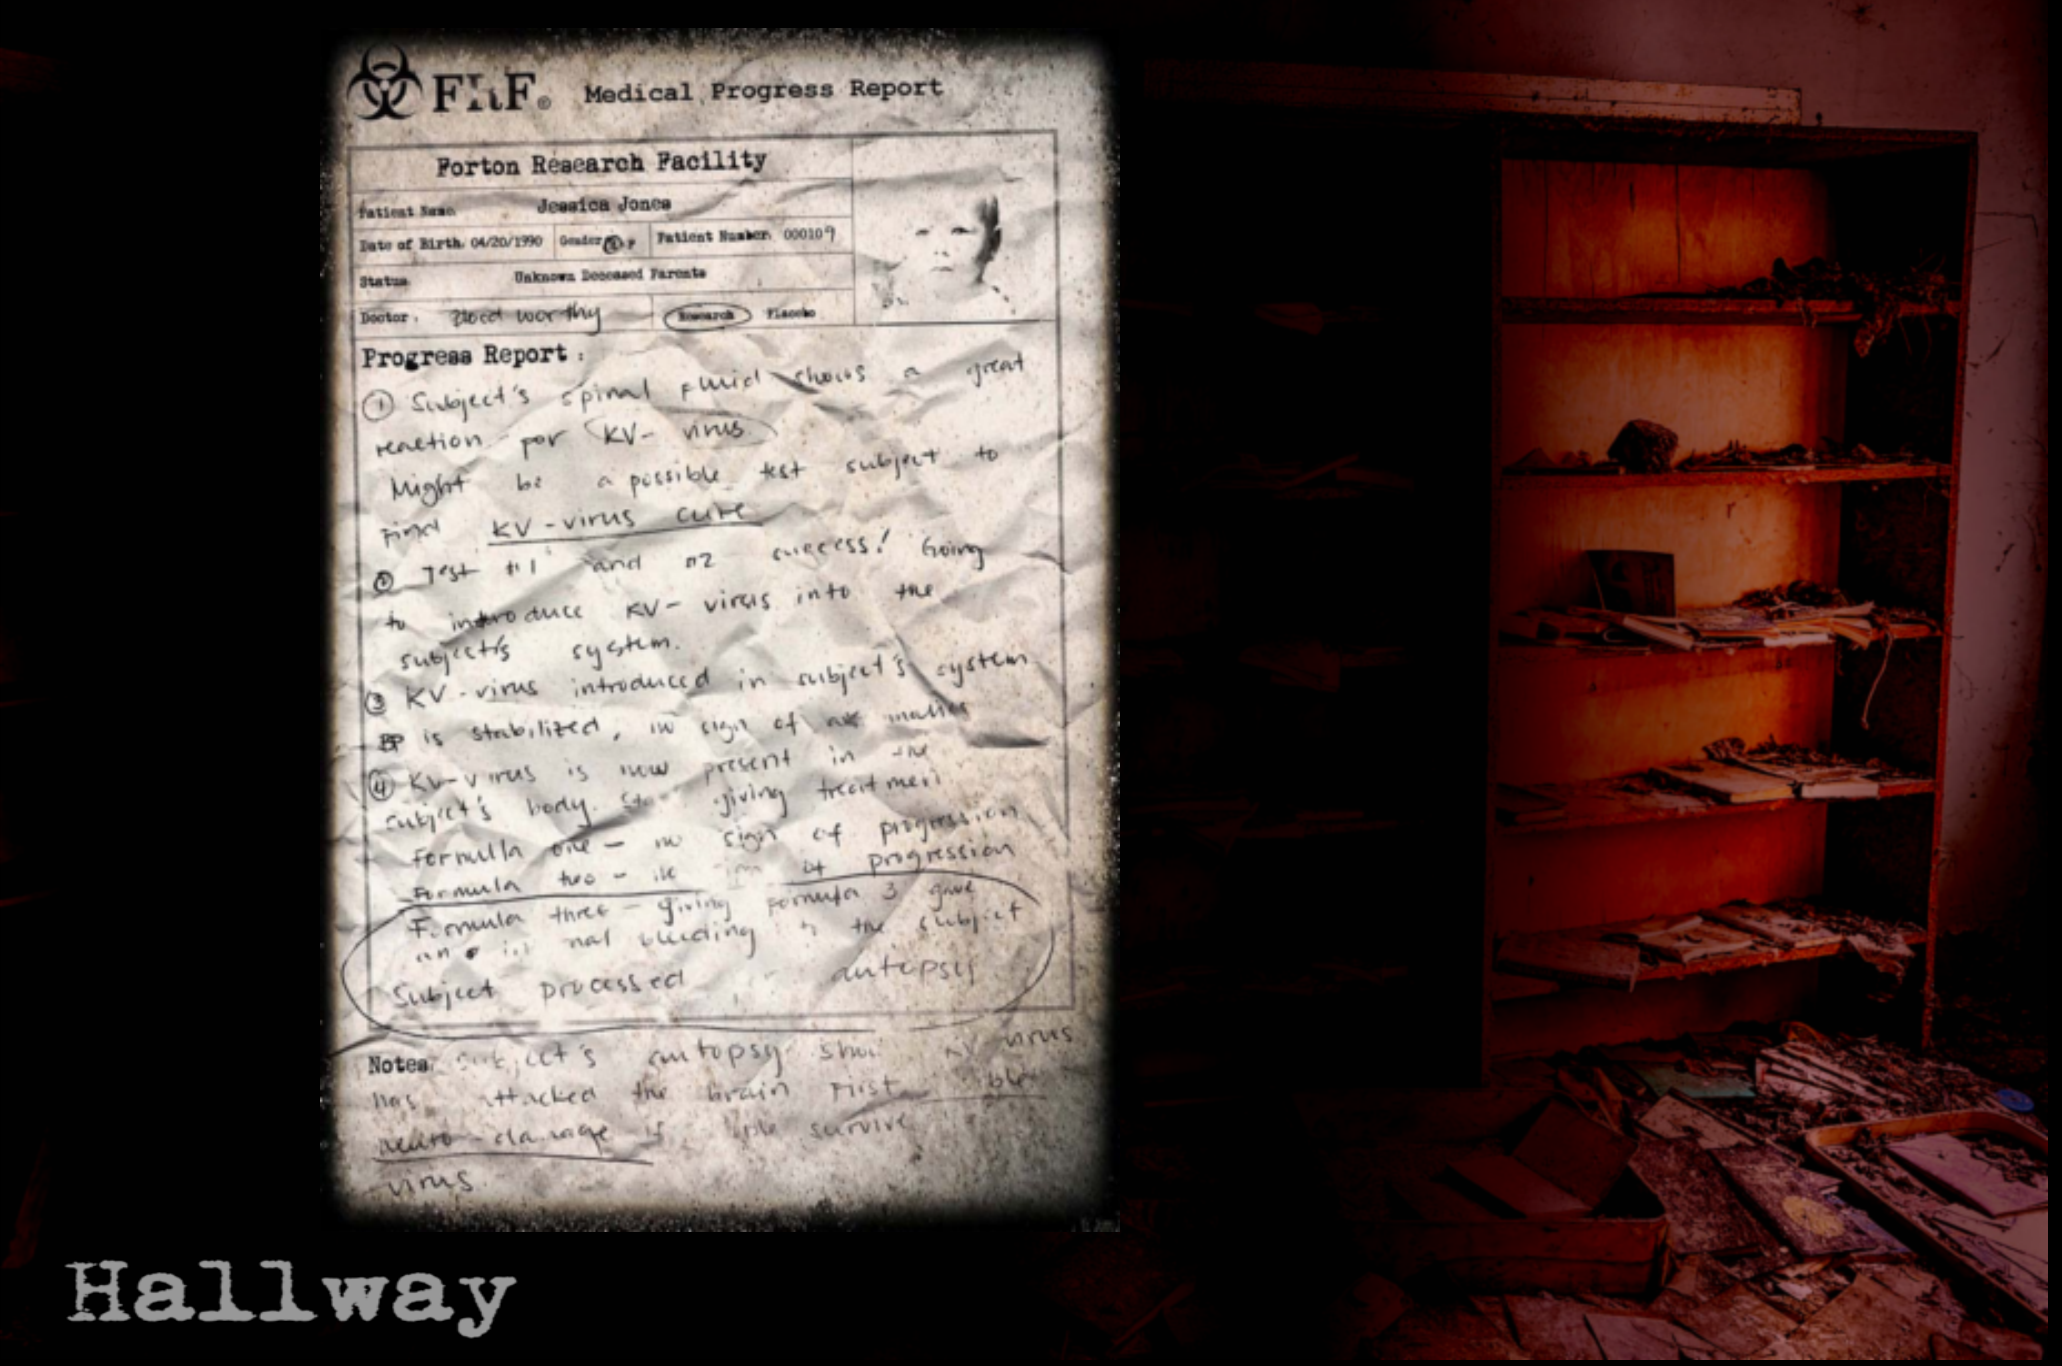 FRF® Medical Progress Report
Forton Research Facility
Patient Name Jessica Jones
Date of Birth. 04/20/1990 Gender F Patient Number. 000109
Status Unknown Deceased Parents
Doctor: Blood worthy Research Placebo
Progress Report:
① Subject's spiral fluid shows a great
reaction for KV- virus
Might be a possible test subject to
find KV-virus cure
② Test #1 and #2 success! Going
to introduce KV- virus into the
subject's system.
③ KV-virus introduced in subject's system
BP is stabilized, no sign of
④ KV-virus is now present in the
subject's body. giving treatment
formulla one - no sign of progression
Formula two - of progression
Formula three - giving formula 3 gave
an bleeding the subject
Subject processed autopsy
Notes: Subject's autopsy virus
has attacked the brain first
neuro-damage survive
virus.
Hallway